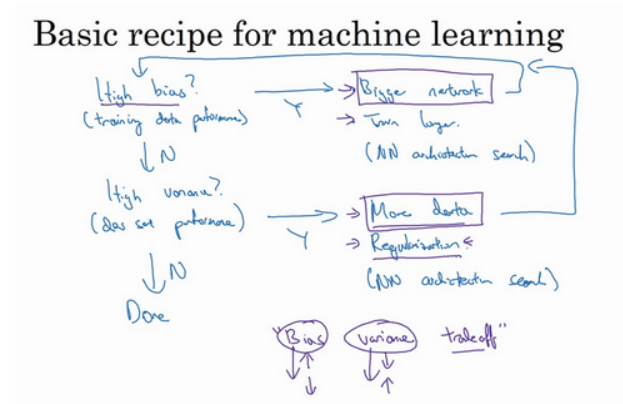 Basic recipe for machine learning
High bias?
(training data performance)
Y
Bigger network
Train longer.
(NN architecture search)
N
High variance?
(dev set performance)
Y
More data
Regularization.
(NN architecture search)
N
Done
"Bias variance tradeoff"